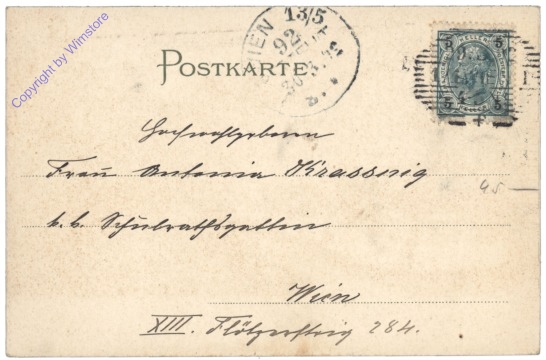 Copyright by Wimstore
WIEN 13/5
92
POSTKARTE.
5 5
Hochwohlgeboren
Frau Antonia Krassnig
k. k. Schulrathsgattin
45 —
Wien
XIII. Flötzersteig 284.